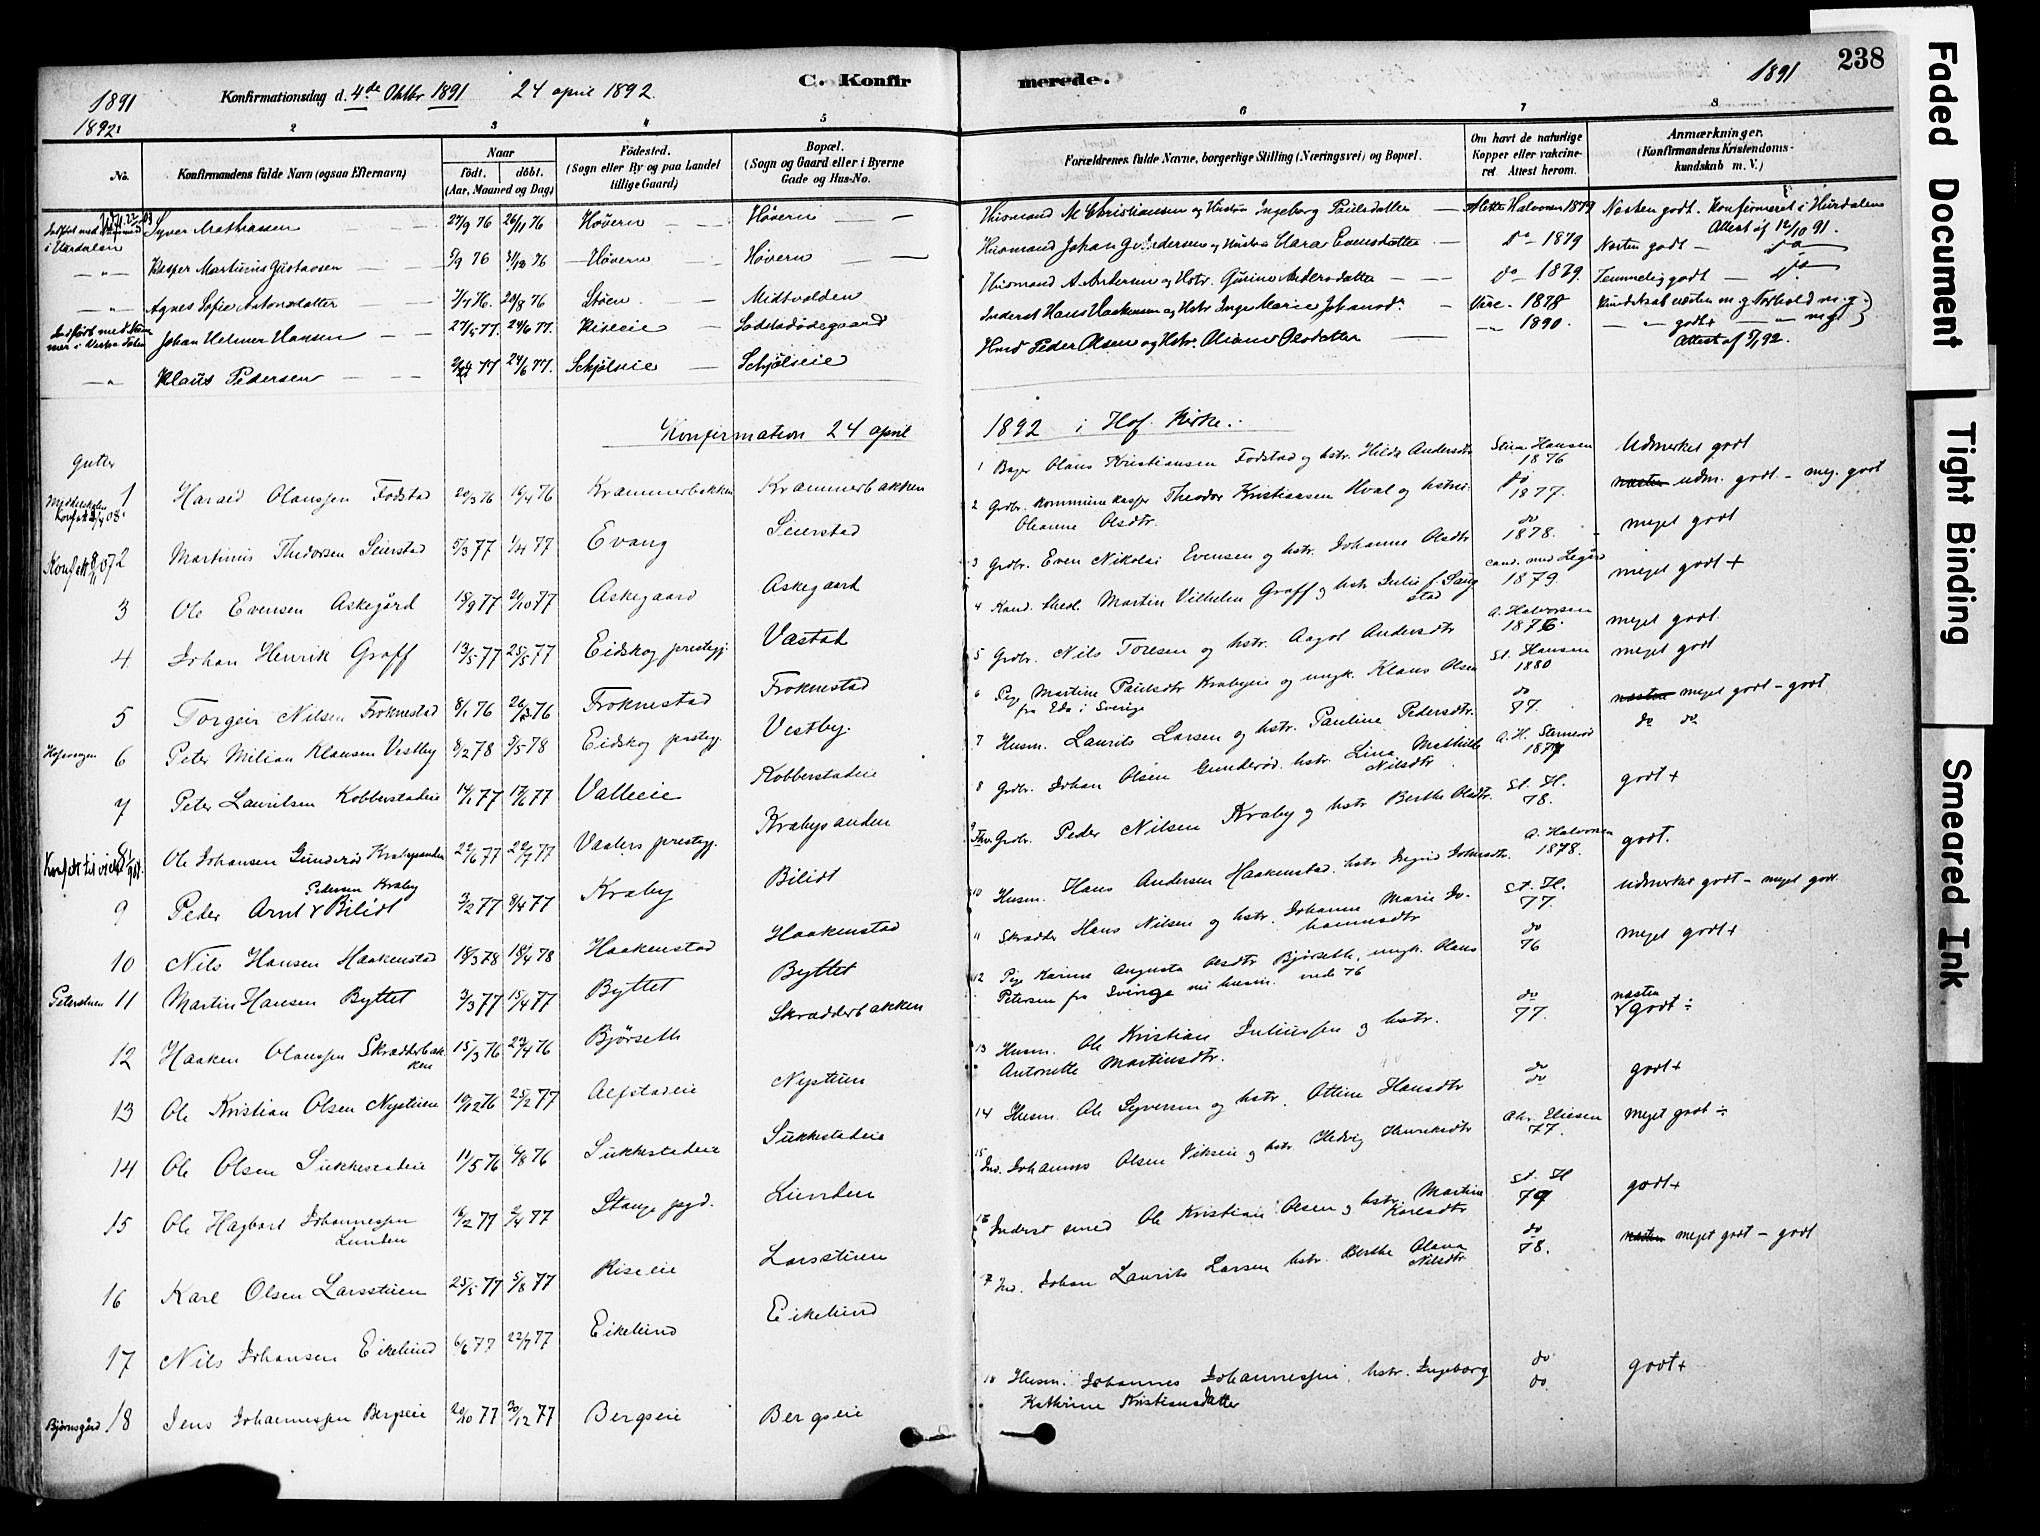 238
1891
1892
Konfirmationsdag d. 4de Oktbr 1891 24 april 1892.
C. Konfirmerede.
1891
2 3 4 5 6 7 8
No.
Konfirmandens fulde Navn (ogsaa Efternavn)
Naar
født. døbt.
(Aar, Maaned og Dag)
Fødested.
(Sogn eller By og paa Landet
tillige Gaard)
Bopæl.
(Sogn og Gaard eller i Byerne
Gade og Hus-No.
Forældrenes fulde Navne, borgerlige Stilling (Næringsvei) og Bopæl.
Om havt de naturlige
Kopper eller vakcineret.
Attest herom.
Anmærkninger.
(Konfirmandens Kristendoms-
kundskab m. V.)
i Hurdalen
Syver Mathiassen 27/9 76 26/11 76 Høvern Høvern
Husmand M Christiansen og Hustru Ingeborg Paulsdatter Mette Halvorsen 1879 Næsten godt. Konfirmeret i Hurdalen
Attest af 12/10 91.
Kasper Martinius Gustavsen 5/9 76 31/12 76 Høvern Høvern
do 1879 Næsten godt
Agnes Sofie Antonsdatter 7/7 76 20/8 76 Støen Midtvolden
Husmand A. Andersen og Hstr. Gurine Andersdatter do 1879. Temmelig godt
Johan Helmer Hansen 27/5 77. 24/6 77. Riseie Sodstadødegaard
Inderst Hans Haakensen og Hstr Inge Marie Johansdr. 1878
Klaus Pedersen 24/6 77. Schjølseie Schjølseie
Husmd Peder Olsen og Hstr. Oliane Olsdatter 1890.
Attest af 5/1 92.
Konfirmation 24 april 1892 i Hof Kirke.
Gutter
Middelskolen
1 Harald Olaussen Fodstad 20/3 76 16/4 76 Krammerbakken Krammerbakken
1 Bager Olaus Kristiansen Fodstad og hstr. Hilda Andersdtr Stine Hansen 1876 Udmerket godt
2 Martinius Thedorsen Seierstad 5/3 77 1/4 77 Evang Seierstad
2 Grdbr. kommunekasser Theodor Kristiansen Hval og hstru
Oleanne Olsdtr. do 1877. næsten udm. godt - meg. godt
3 Ole Evensen Askegård 18/9 77 21/10 77 Askegaard Askegaard
3 Grdbr. Even Nikolai Evensen og hstr. Johanne Olsdtr do 1878. meget godt
4 Johan Henrik Graff 13/5 77 25/5 77 Eidskog prestegj. Vestad
4 Kand. theol. Martin Vilhelm Graff og hstr Julie f. Sangstad cand. med Legård 1879 meget godt +
5 Torgeir Nilsen Froknestad 8/1 76 Froknestad Froknestad
5 Grdbr. Nils Toresen og hstr. Aagot Andersdtr A. Halvorsen 1876. meget godt.
Hofsvangen 6 Peter Milian Klausen Vestby 8/2 78 5/5 78 Eidskog prestegj. Vestby.
6 Pige Martine Paulsdtr Krabyeie og ungk. Klaus Olsen
fra Eda i Sverige St. Hansen 1880 meget godt
7 Peter Lauritsen Kobberstadeie 14/1 77 17/6 77 Valleeie Kobberstadeie
7 Husm. Laurits Larsen og hstr. Pauline Pedersdtr. do 77. næsten meget godt - godt
Ole Johansen Gunderød Krabysanden 22/6 77 22/7 77 Vaalers prestegj. Krabysanden
8 Grdbr. Johan Olsen Gunderød. hstr. Lina Mathilde
Nilsdtr do do
9 Peder Arnt Bilidt
Pedersen Kraby 3/2 77 8/4 77 Kraby Bilidt
9 Grdbr. Peder Nilsen Kraby og hstr Berthe Olsdtr. St. H. 78. godt +
10 Nils Hansen Haakenstad 18/3 78 18/4 78 Haakenstad Haakenstad
10 Husm. Hans Andersen Haakenstad. hstr Ingrid Johnsdtr. A. Halvorsen 1878. godt.
11 Martin Hansen Byttet 3/3 77 15/4 77 Byttet Byttet
11 Skrædder Hans Nilsen og hstr. Johanne Marie Johannesdtr St. H. 77. udmerket godt - meget godt
12 Haaken Olaussen Skrædderbakken 15/3 76 23/4 76 Bjørseth Skrædderbakken
12 Pige Karine Augusta Olsdtr Bjørseth, ungk. Olaus
Petersen fra Sverige nu husm. do 76 meget godt +
13 Ole Kristian Olsen Nystuen 10/12 76 25/2 77 Alfstadeie Nystuen
13 Husm. Ole Kristian Juliussen og hstr.
Antonette Martinsdtr. do 77. næsten godt ÷
14 Ole Olsen Sukkestadeie 11/5 76 6/8 76 Sukkestadeie Sukkestadeie
14 Husm. Ole Syversen og hstr. Ottine Hansdtr do do godt +
15 Ole Hagbart Johannessen
Lunden 16/2 77 2/4 77 Stange pgd. Lunden
15 Ind. Johannes Olsen Vikseie og hstr. Hedvig Henriksdtr Chr. Eliesen 77. Meget godt ÷
16 Karl Olsen Larsstuen 25/5 77 5/8 77 Riseeie Larsstuen
16 Inderst smed Ole Kristian Olsen og hstr. Martine
Karlsdtr St. H 79 godt +
17 Nils Johansen Eikelund 6/6 77 22/7 77 Eikelund Eikelund
17 Ind. Johan Laurits Larsen hstr. Berthe Olava
Nilsdtr do 78. næsten meget godt - godt
Bjørnsgård 18 Jens Johannessen Bergseie 20/10 77 30/12 77 Bergseie Bergseie
18 Husm. Johannes Johannessen, hstr. Ingeborg
Kathrine Kristiansdatter do do. godt +
Faded Document
Tight Binding
Smeared Ink